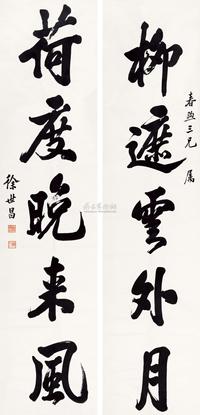 柳遮雲外月
春煦三兄 属
荷度晚来風
徐世昌